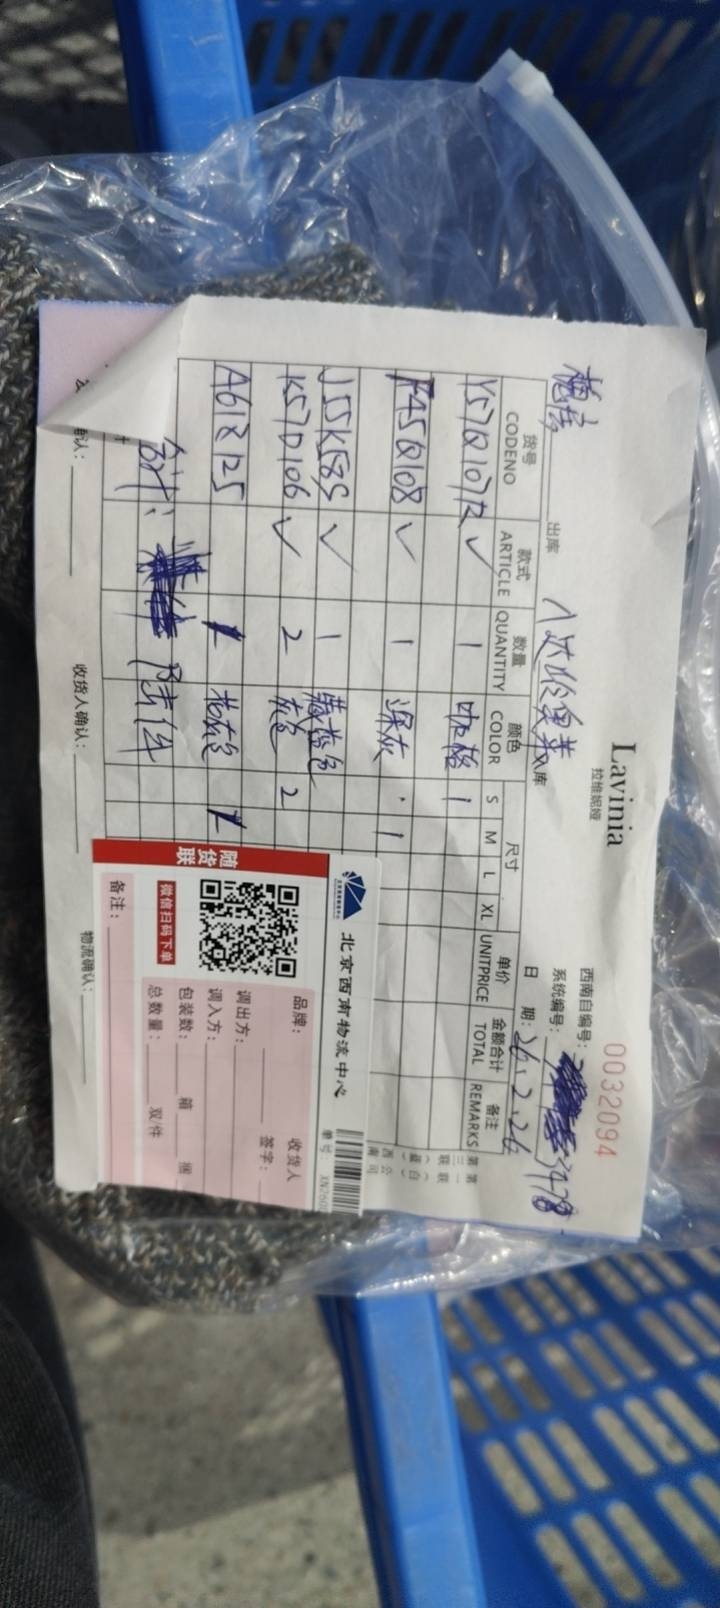 Lavinia
拉维妮娅
0032094
西南自编号：3478
系统编号：
出库 八达岭奥莱 入库 日 期：26.2.26
货号 款式 数量 颜色 尺寸 单价 金额合计 备注
CODENO ARTICLE QUANTITY COLOR S M L XL UNITPRICE TOTAL REMARKS
Y57Q107R ✓ 1 咖格 1
F45Q108 ✓ 1 深灰 1
J55K585 ✓ 1 藏蓝色
K57D106 ✓ 2 灰色 2
A61R125 1 花灰色 1
合计： 陆件
收货人确认：
物流确认：
北京西南物流中心
随货联
微信扫码下单
单号
品牌：
收货人
调出方：
签字：
调入方：
包装数： 箱 捆
总数量： 双/件
备注：